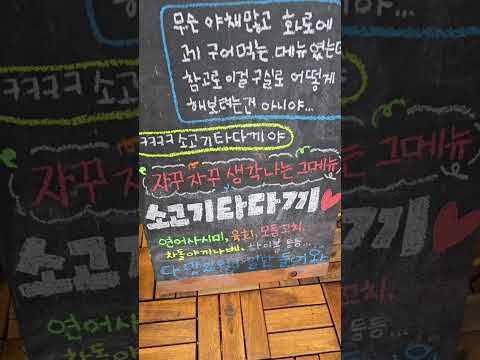 무슨 야채많고 화로에
고기 구어먹는 메뉴였는데
참고로 이걸 구실로 어떻게
해보려는건 아니야...
ㅋㅋㅋㅋ 소고기타다끼야
자꾸 자꾸 생각나는 그메뉴
소고기타다끼
연어사시미, 육회, 모듬꼬치,
차돌야끼나베, 하이볼 등등...
다 맛있으니 일단 들어와